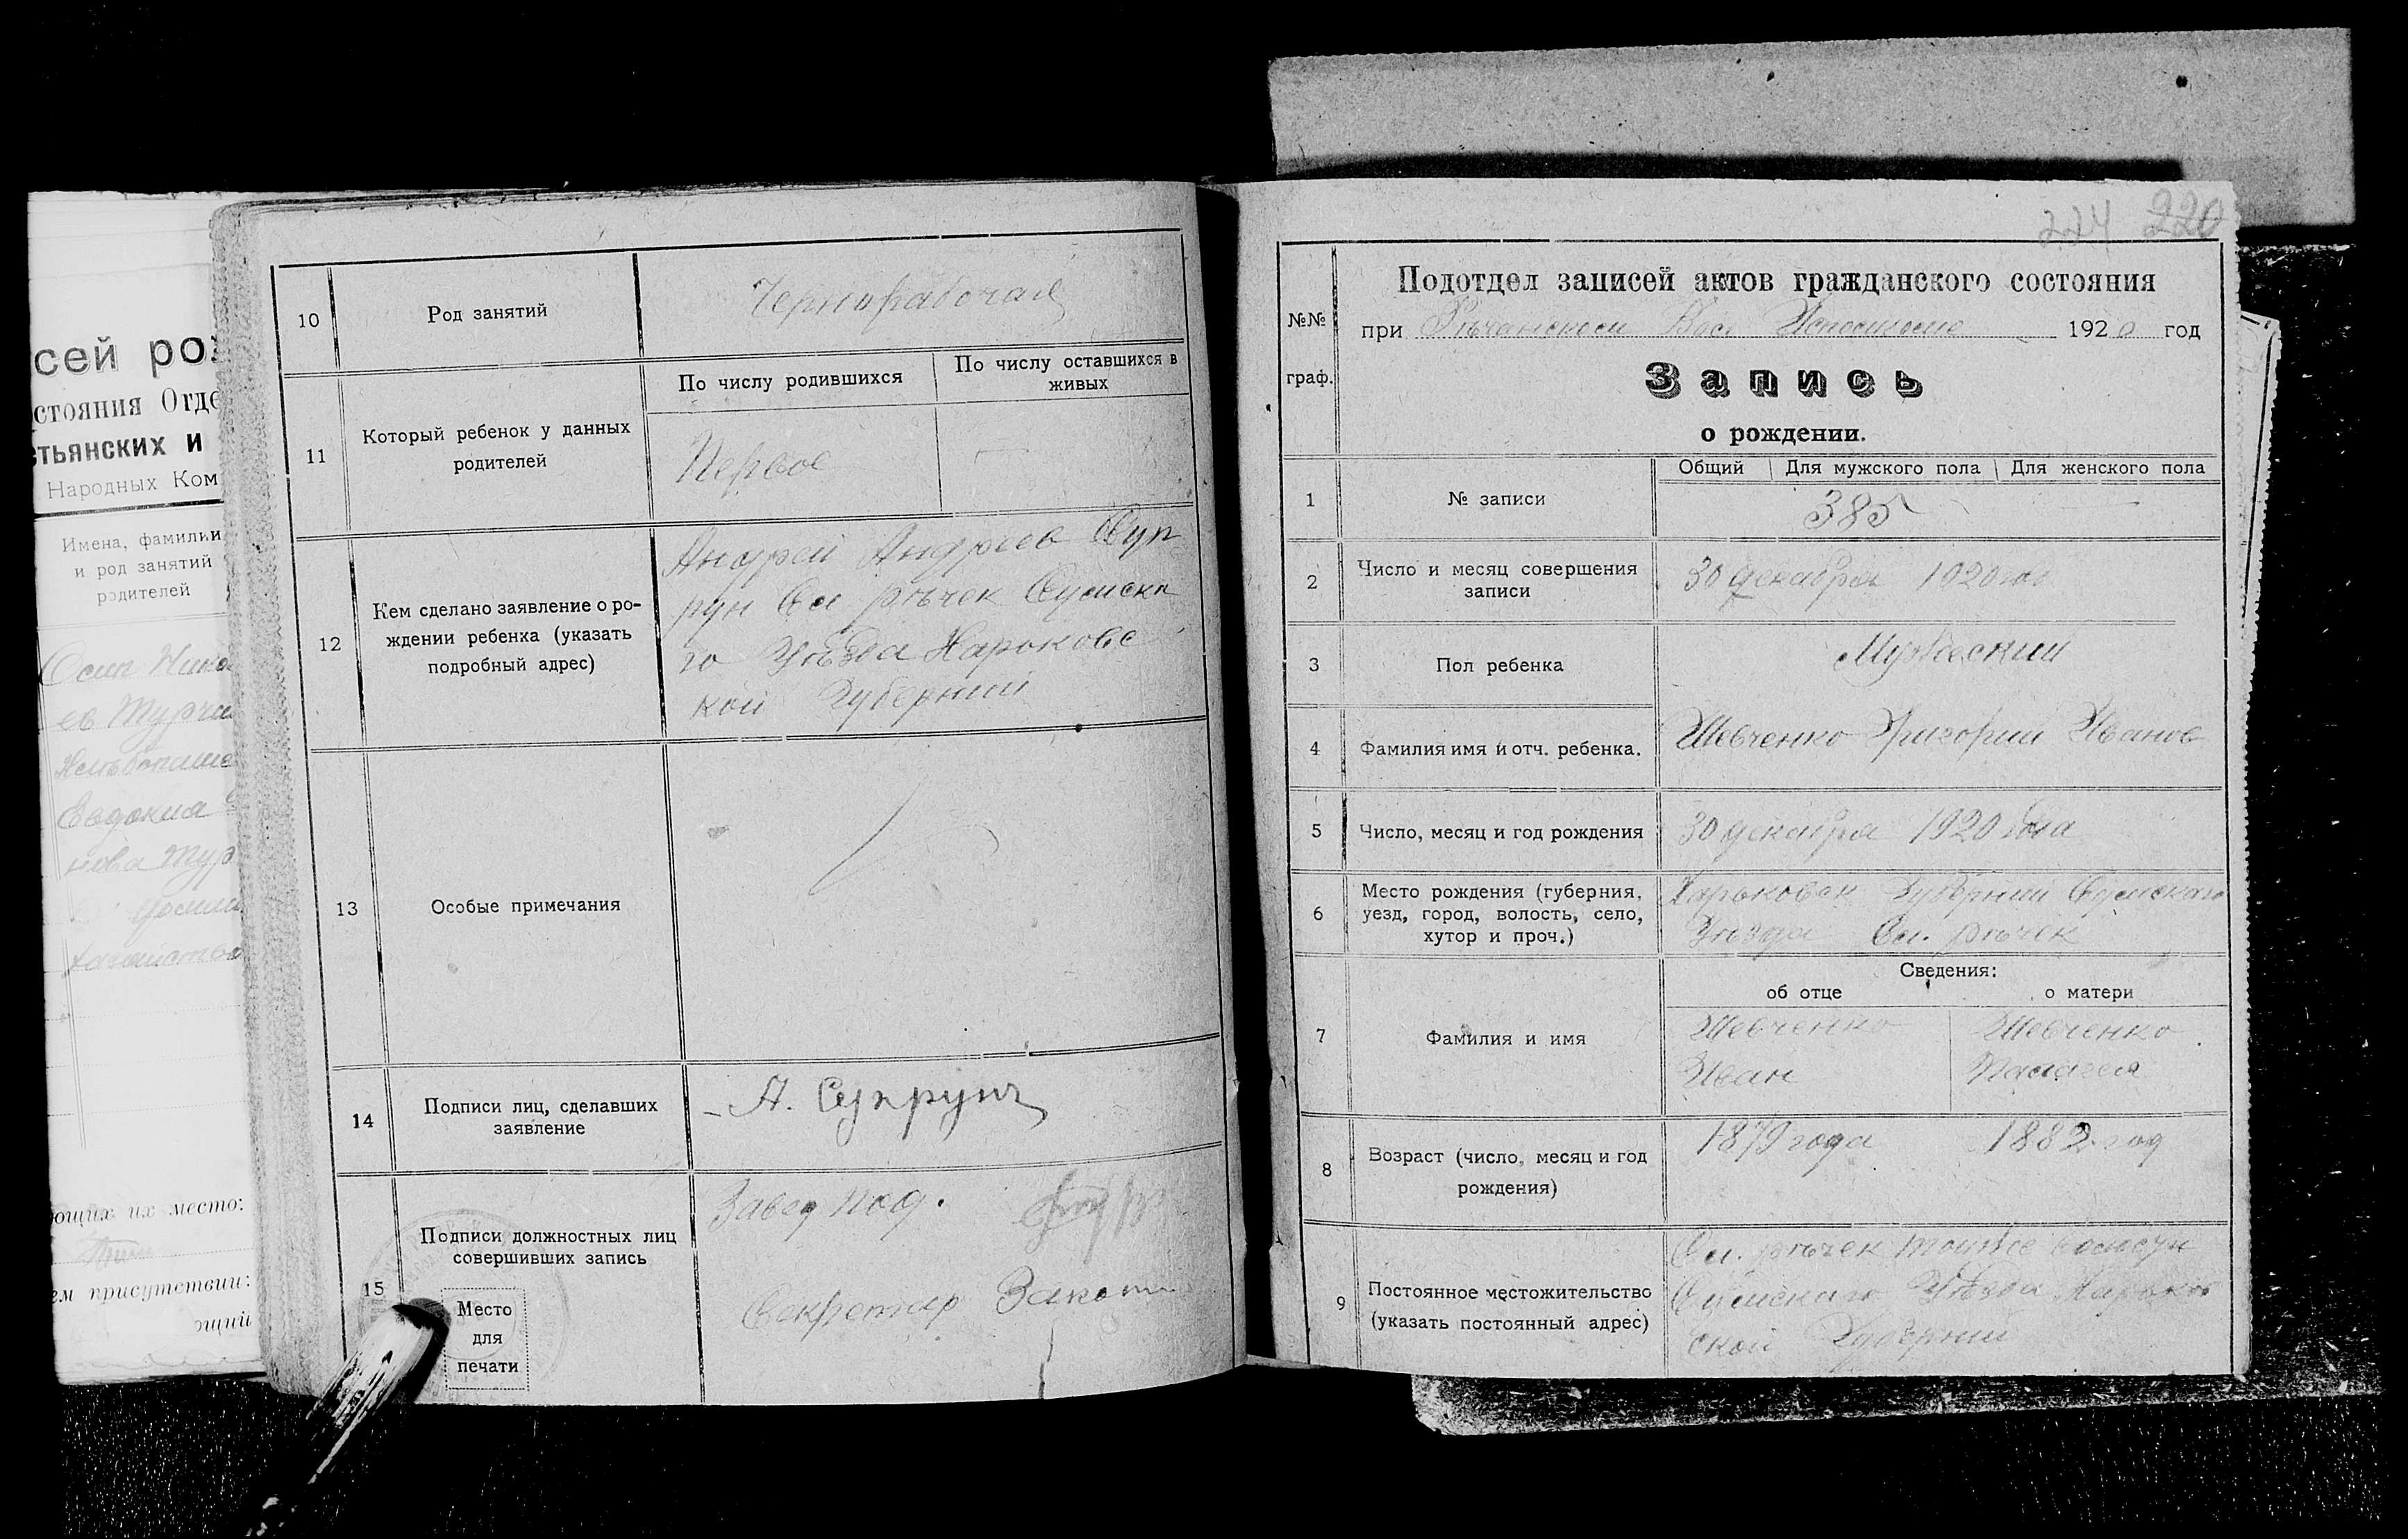 сей рож
стояния Отде
стьянских и
Народных Ком
Имена, фамилии
и род занятий
родителей
Осип Нико
ев Турчи
Евдокия
нова Тур
ющих их место:
ем присутствии:
ящий
10
Род занятий
Чернорабочая
11
Который ребенок у данных
родителей
По числу родившихся
По числу оставшихся в
живых
Первое
—
12
Кем сделано заявление о ро-
ждении ребенка (указать
подробный адрес)
Андрей Андреев Суп
рун Сл рѣчек Сумска
го Уѣзда Харьковс
кой Губернии
13
Особые примечания
14
Подписи лиц, сделавших
заявление
А. Супрунъ
15
Подписи должностных лиц
совершивших запись
Место
для
печати
Завед под.
Секретар
224 220
№№
граф.
Подотдел записей актов гражданского состояния
при Рѣчанском Вол Исполкоме 1920 год
Запись
о рождении.
1
№ записи
Общий Для мужского пола Для женского пола
385 —
2
Число и месяц совершения
записи
30 декабря 1920 го
3
Пол ребенка
Мужеский
4
Фамилия имя и отч. ребенка.
Шевченко Григорий Иванов
5
Число, месяц и год рождения
30 декабря 1920 года
6
Место рождения (губерния,
уезд, город, волость, село,
хутор и проч.)
Харьковск Губернии Сумскаго
Уѣзда Сл. рѣчек
7
Фамилия и имя
Сведения:
об отце о матери
Шевченко Шевченко
Иван Палагея
8
Возраст (число, месяц и год
рождения)
1879 года 1882 год
9
Постоянное местожительство
(указать постоянный адрес)
Сл. рѣчек тойже волости
Сумскаго Уѣзда Харьков
ской Губернии